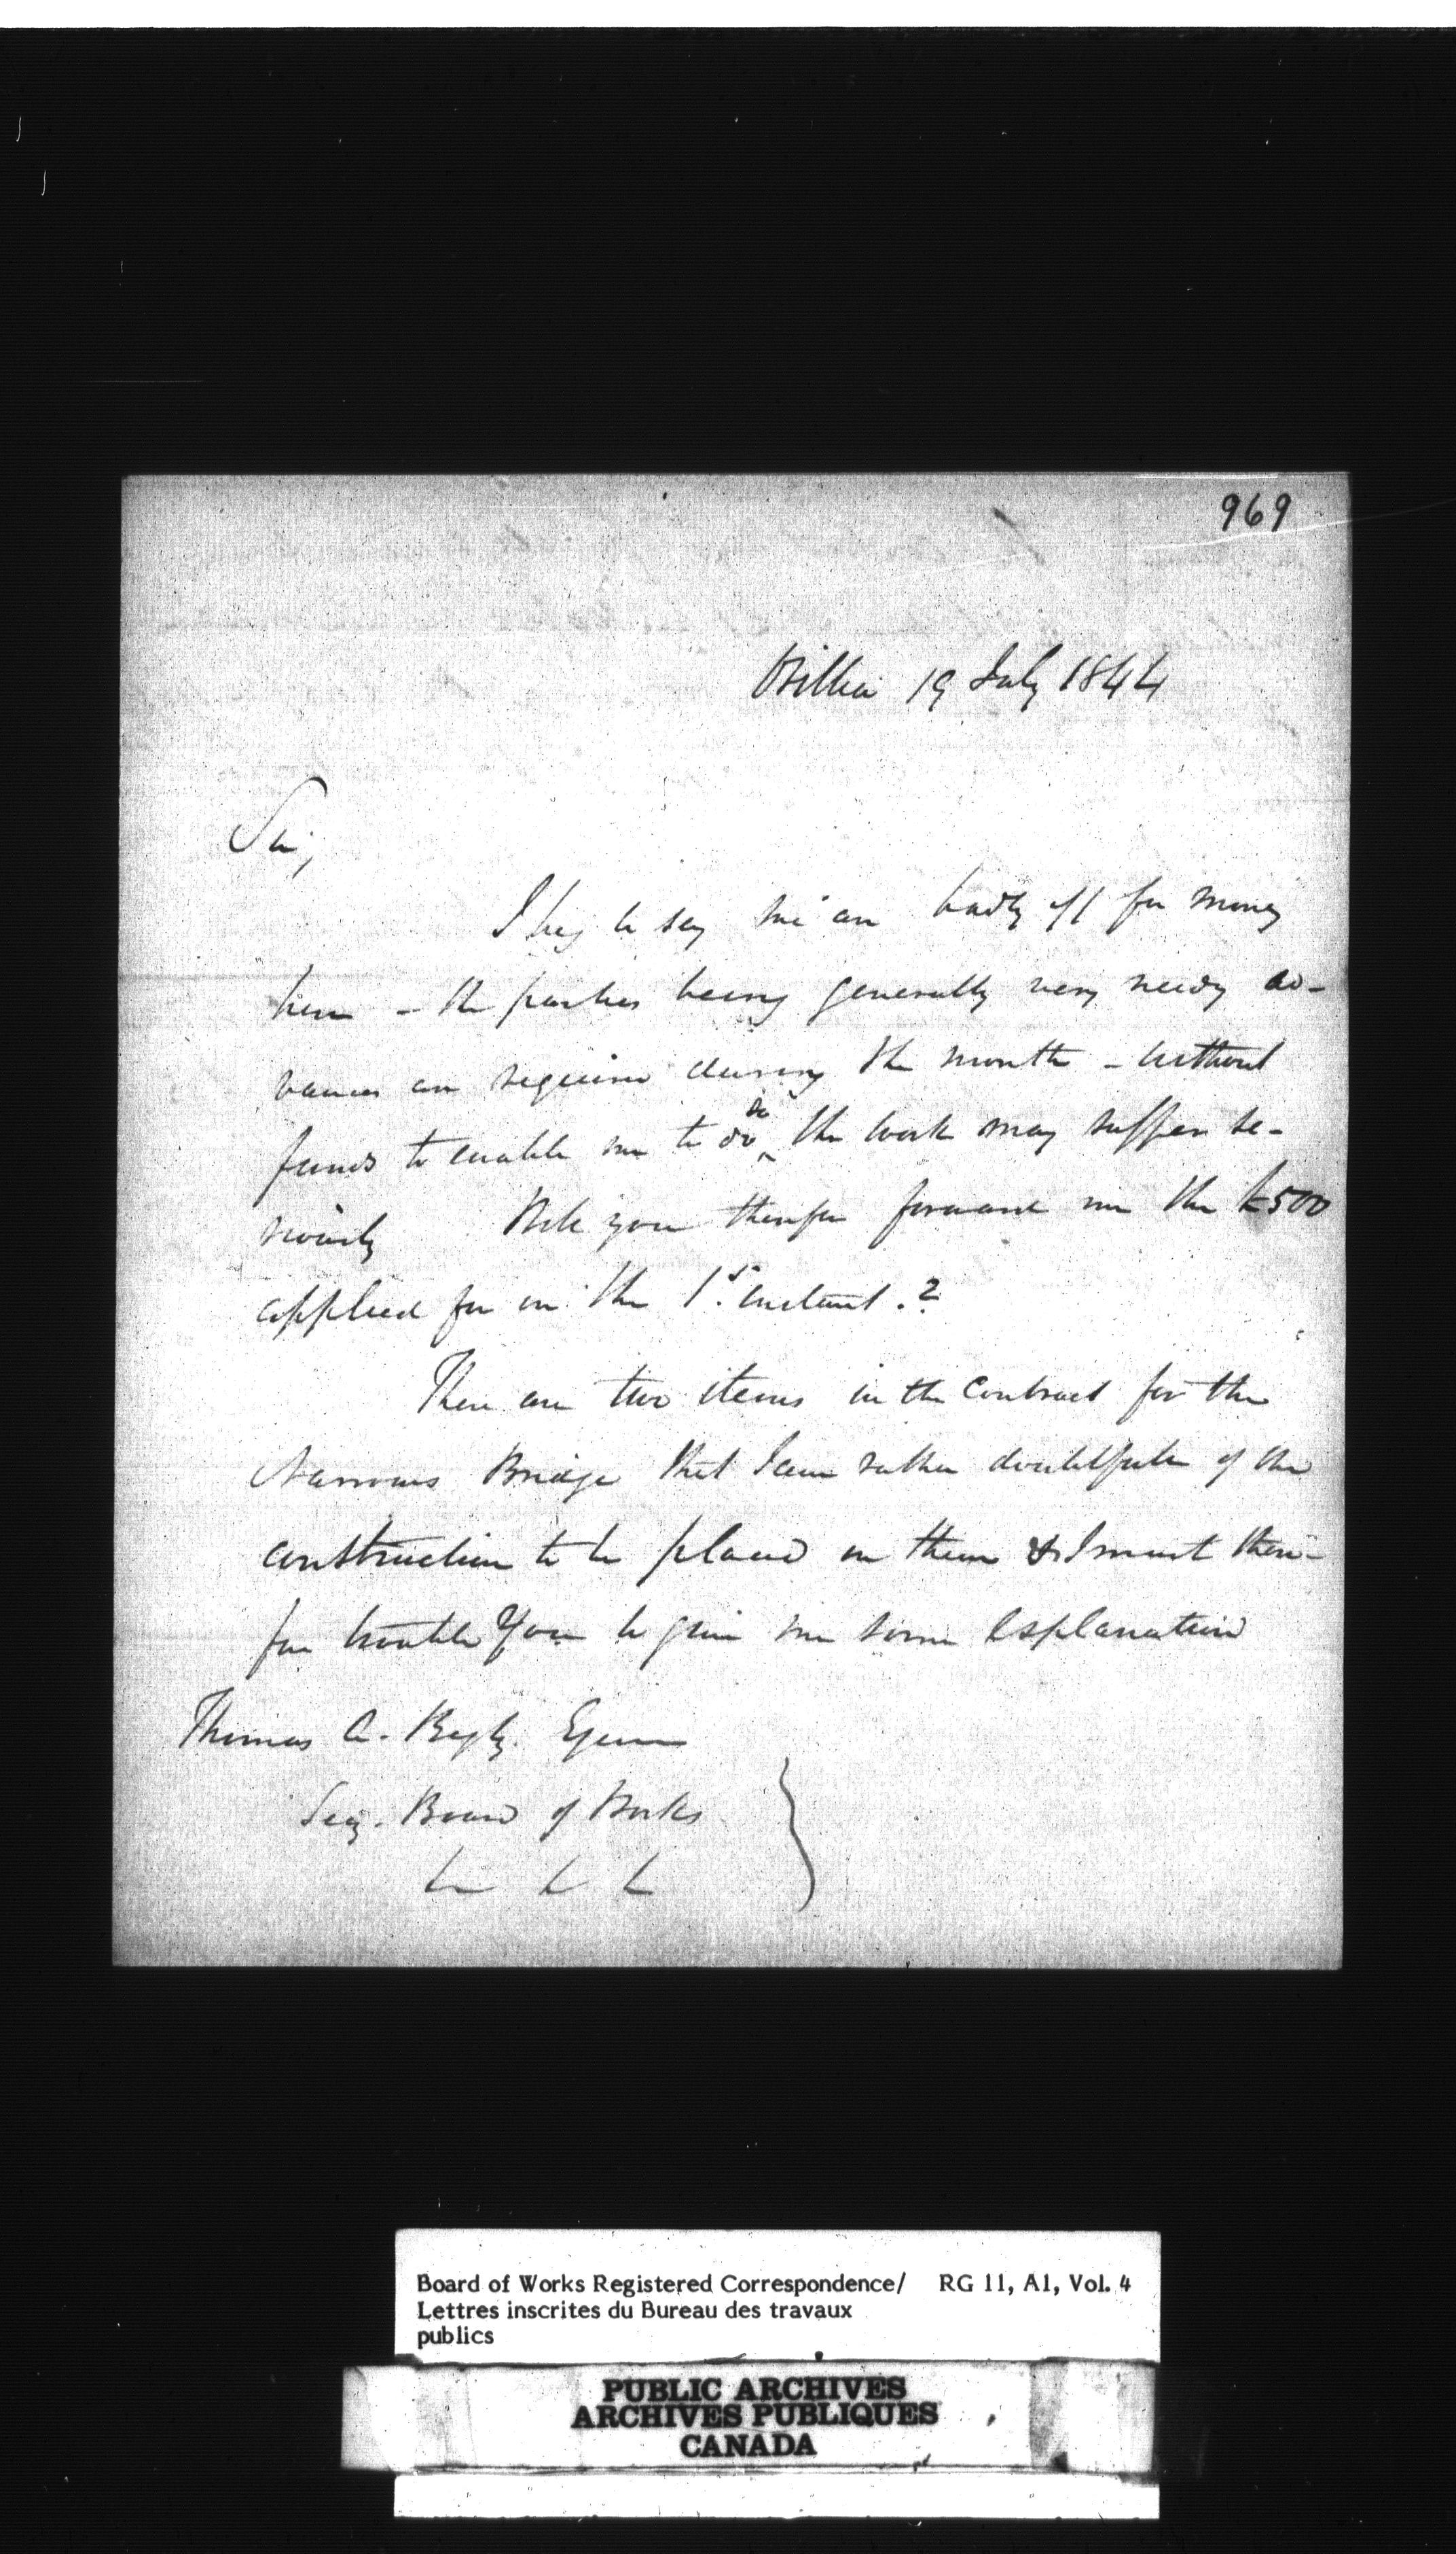 969
Orillia 19 July 1844
Sir,
I beg to say we are badly off for money
here - the parties being generally very needy ad-
vances are required during the month - without
funds to enable me to do so the work may suffer se-
riously Will you therefore forward me the £500
applied for on the 1st. instant.?
There are two items in the Contract for the
Narrows Bridge that I am rather doubtful of the
construction to be placed on them & I must there-
fore trouble You to give me some Explanation
Thomas A. Begly. Esquire
Secy. Board of Works
PUBLIC ARCHIVES
Board of Works Registered Correspondence/ RG 11, A1, Vol. 4
Lettres inscrites du Bureau des travaux
publics
PUBLIC ARCHIVES
ARCHIVES PUBLIQUES
CANADA